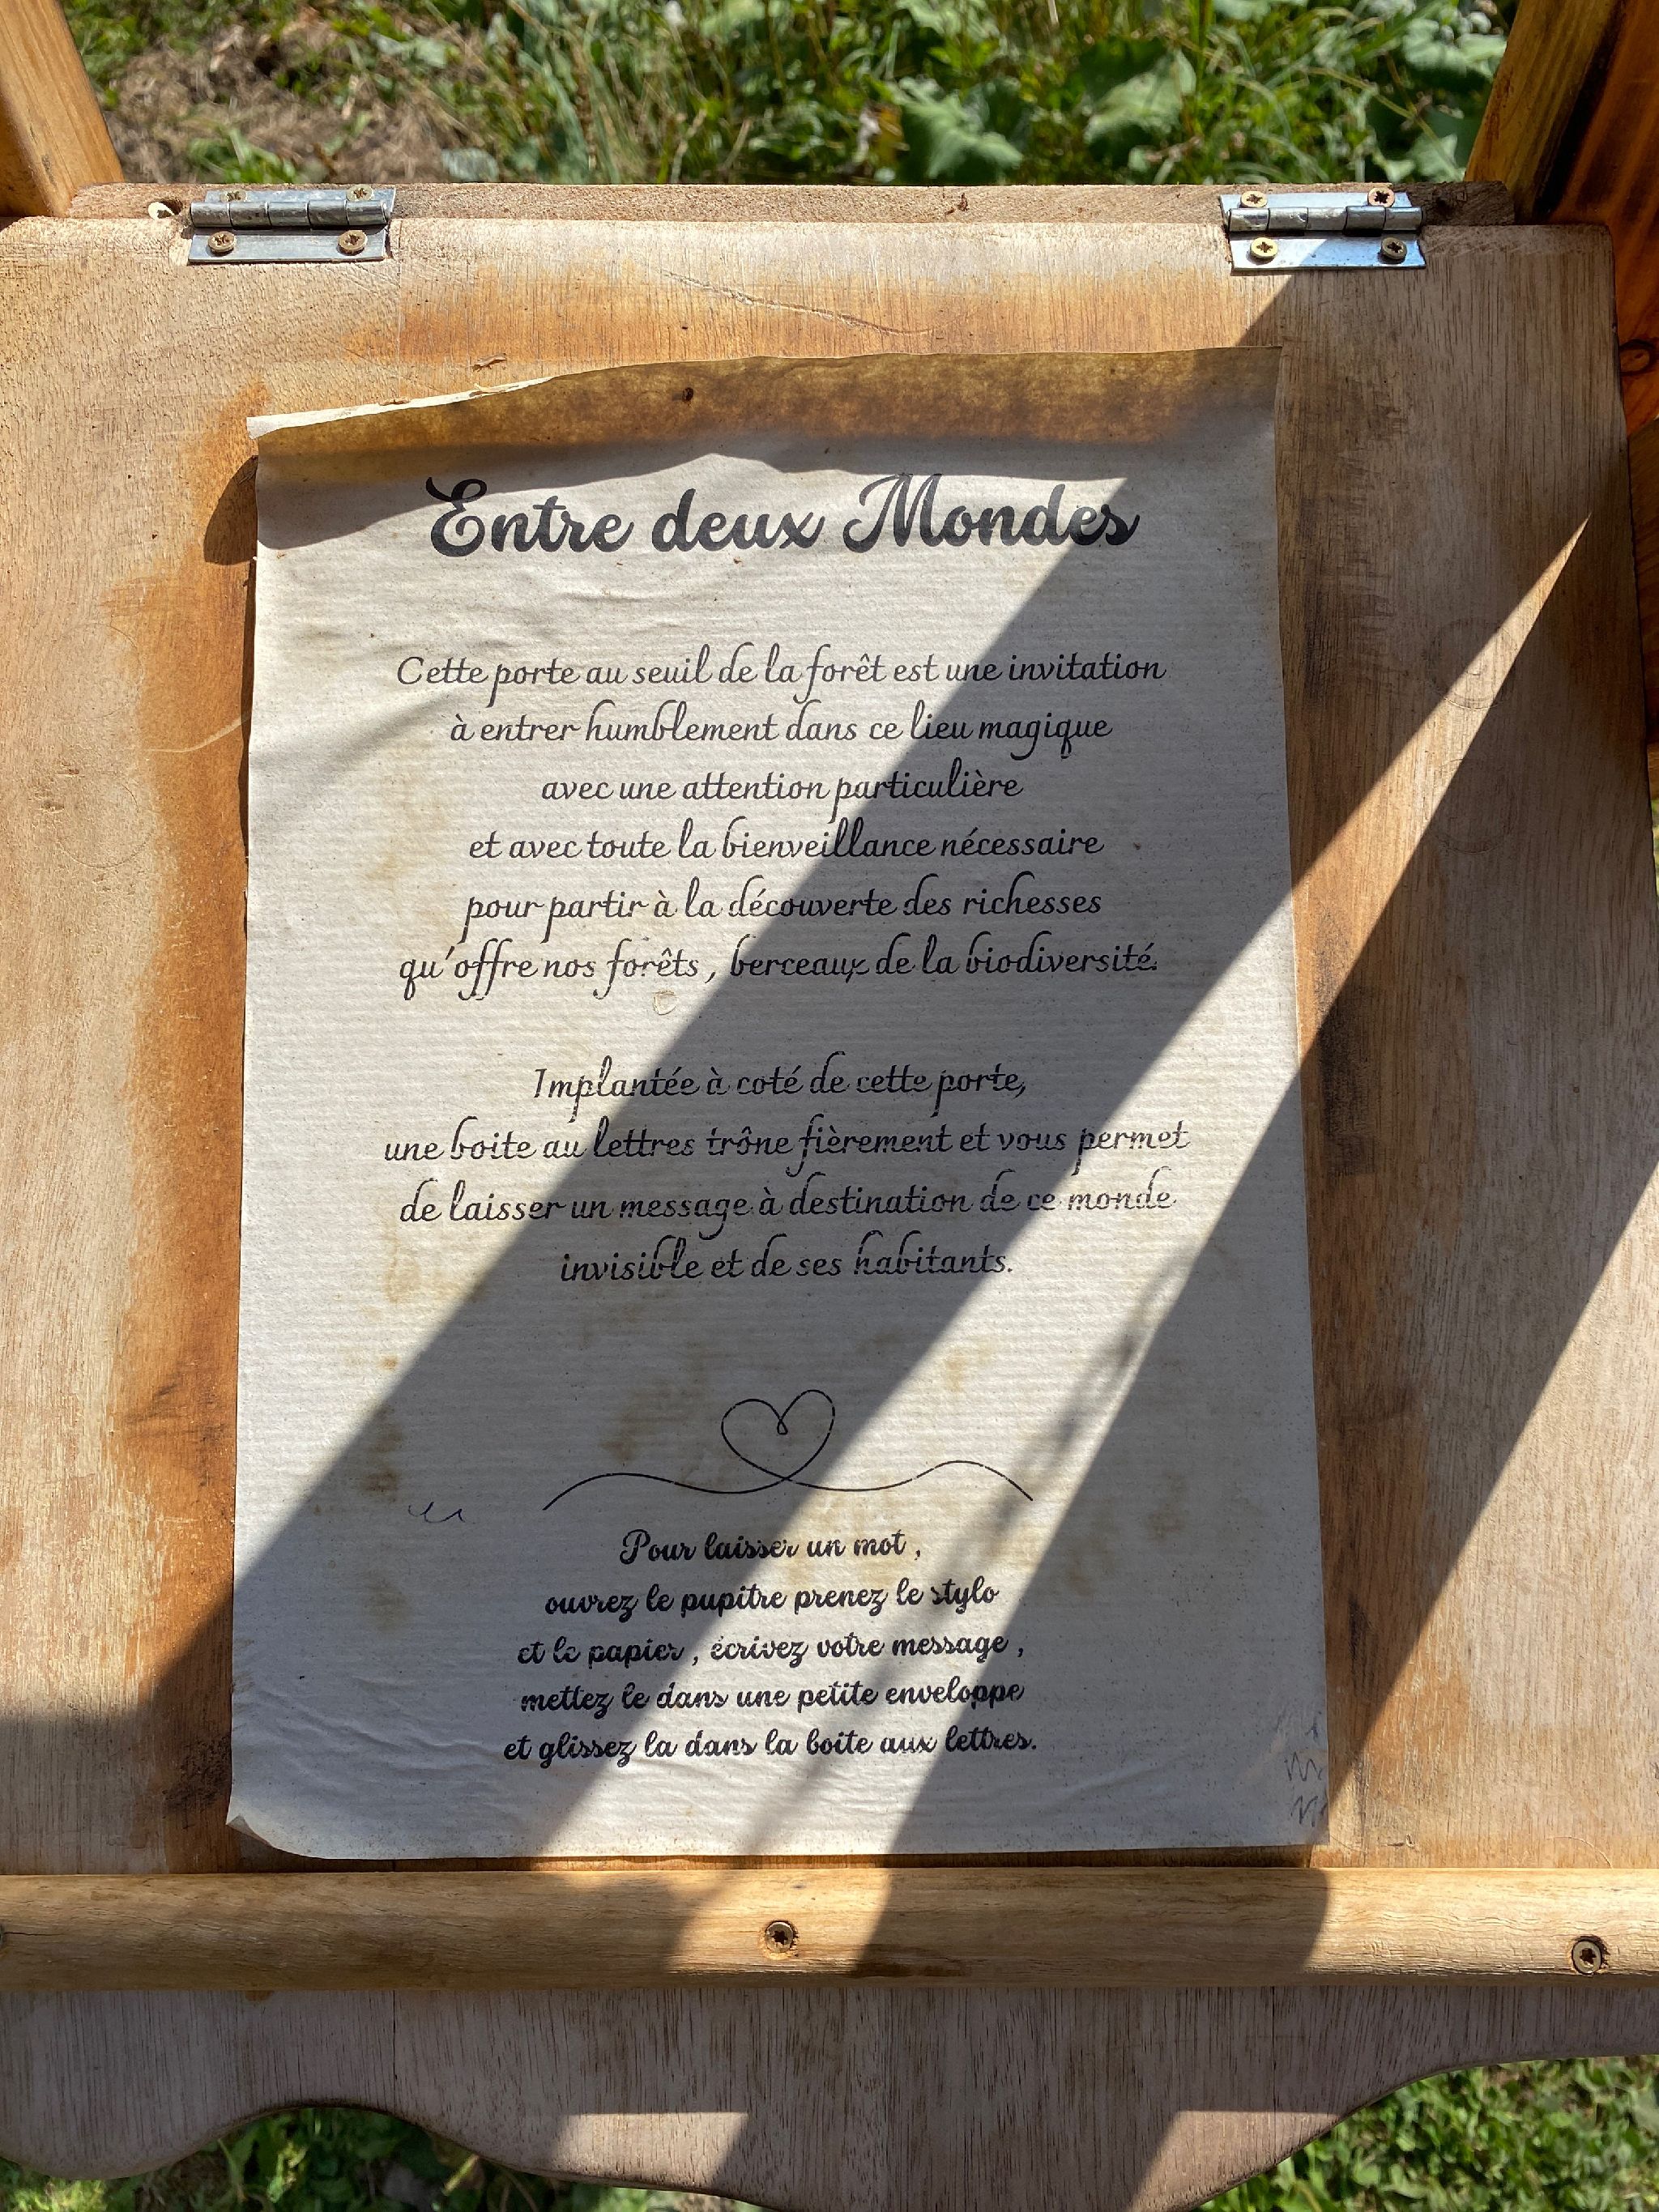 Entre deux Mondes
Cette porte au seuil de la forêt est une invitation
à entrer humblement dans ce lieu magique
avec une attention particulière
et avec toute la bienveillance nécessaire
pour partir à la découverte des richesses
qu'offre nos forêts , berceaux de la biodiversité.
Implantée à coté de cette porte,
une boite au lettres trône fièrement et vous permet
de laisser un message à destination de ce monde
invisible et de ses habitants.
Pour laisser un mot ,
ouvrez le pupitre prenez le stylo
et le papier , écrivez votre message ,
mettez le dans une petite enveloppe
et glissez la dans la boite aux lettres.